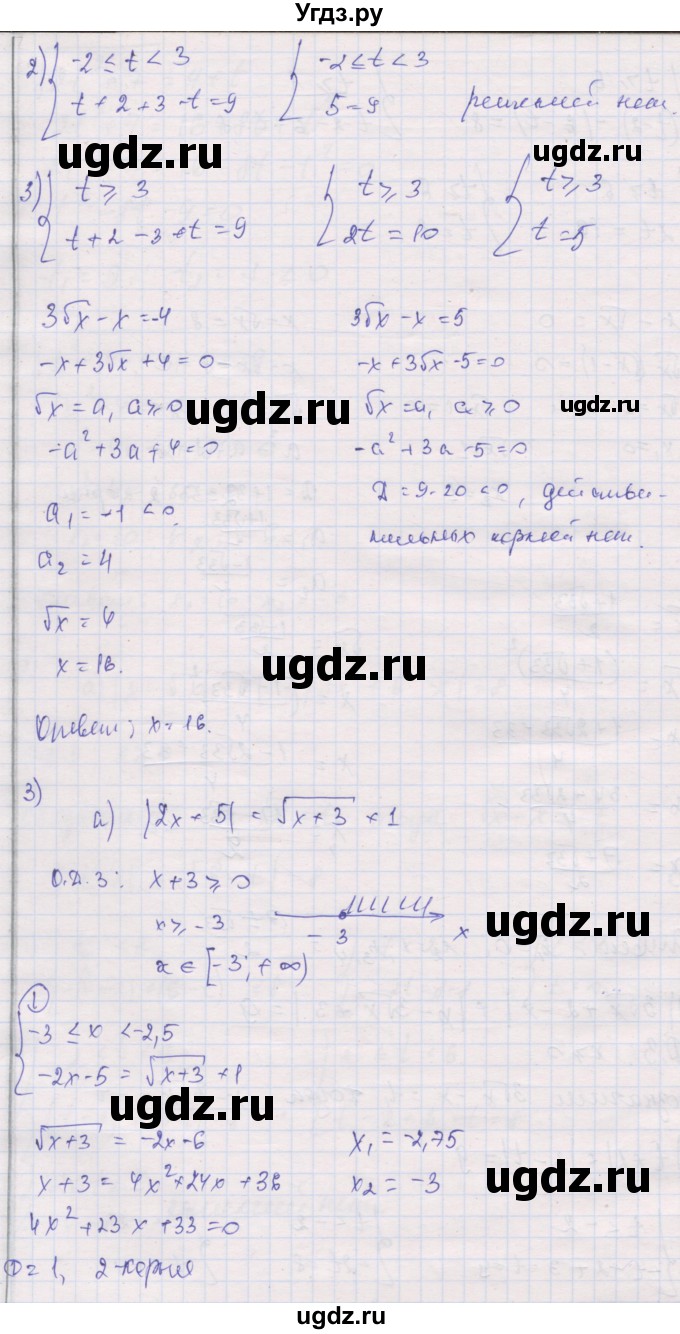 Угдз.ру
2) { -2 ≤ t < 3    { -2 ≤ t < 3
t + 2 + 3 - t = 9    5 = 9    решений нет.
ugdz.ru ugdz.ru
3) { t ≥ 3    { t ≥ 3    { t ≥ 3
t + 2 - 3 + t = 9    2t = 10    t = 5
3√x - x = -4    3√x - x = 5
-x + 3√x + 4 = 0    -x + 3√x - 5 = 0
√x = a, a ≥ 0    √x = a, a ≥ 0
ugdz.ru ugdz.ru
-a² + 3a + 4 = 0    -a² + 3a - 5 = 0
a₁ = -1 < 0.    Д = 9 - 20 < 0, действи-
a₂ = 4    тельных корней нет.
√x = 4
x = 16.
ugdz.ru
Ответ: x = 16.
3)
а) |2x + 5| = √x + 3 + 1
О.Д.З: x + 3 ≥ 0
x ≥ -3    -3    x
ugdz.ru
x ∈ [-3; +∞)
I
{ -3 ≤ x < -2,5
-2x - 5 = √x + 3 + 1
ugdz.ru
√x + 3 = -2x - 6    x₁ = -2,75
x + 3 = 4x² + 24x + 36    x₂ = -3
ugdz.ru
4x² + 23x + 33 = 0
D = 1, 2-корня
ugdz.ru